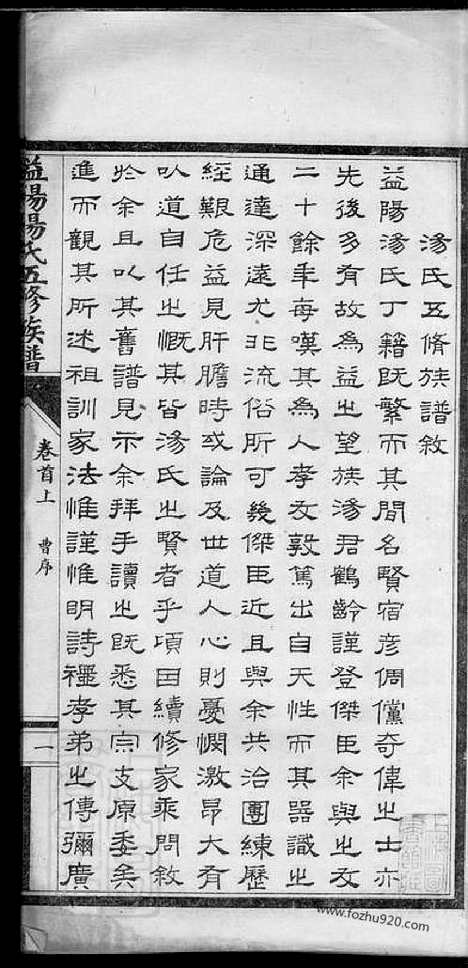 湯氏五脩族譜敘
益陽湯氏丁籍既繁而其間名賢宿彥倜儻奇偉之士亦
先後多有故為益之望族湯君鶴齡謹登傑臣余與之友
二十餘年每嘆其為人孝友敦篤出自天性而其器識之
通達深遠尤非流俗所可幾傑臣近且與余共治團練歷
經艱危益見肝膽時或論及世道人心則憂憫激昂大有
以道自任之慨其皆湯氏之賢者乎頃因續修家乘問敘
於余且以其舊譜見示余拜手讀之既悉其宗支原委矣
進而觀其所述祖訓家法惟謹惟明詩禮孝弟之傳彌廣
益陽湯氏五修族譜
卷首上 曹序
一
www.fozhu920.com